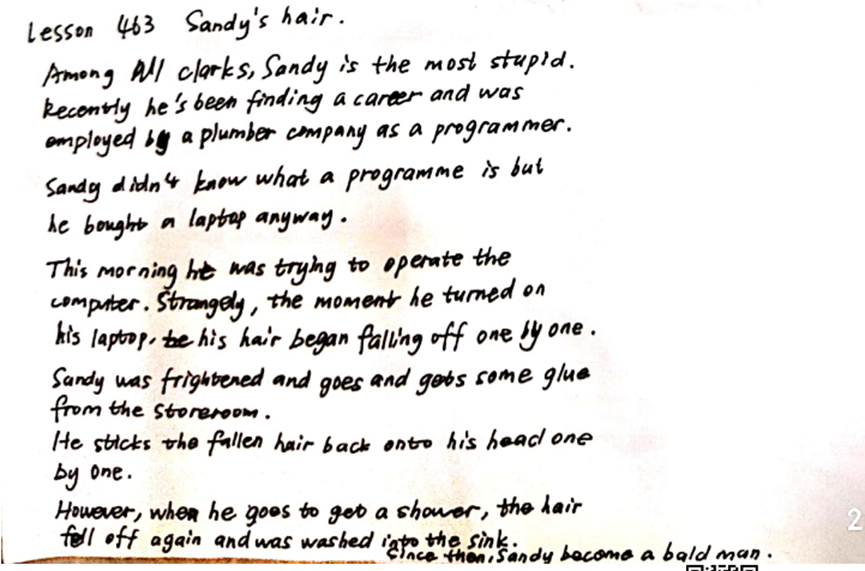 Lesson 463 Sandy's hair.
Among All clarks, Sandy is the most stupid.
Recently he's been finding a career and was
employed by a plumber company as a programmer.
Sandy didn't know what a programme is but
he bought a laptop anyway.
This morning he was trying to operate the
computer. Strangely, the moment he turned on
his laptop, his hair began falling off one by one.
Sandy was frightened and goes and gets some glue
from the storeroom.
He sticks the fallen hair back onto his head one
by one.
However, when he goes to get a shower, the hair
fell off again and was washed into the sink.
Since then, Sandy become a bald man.
2